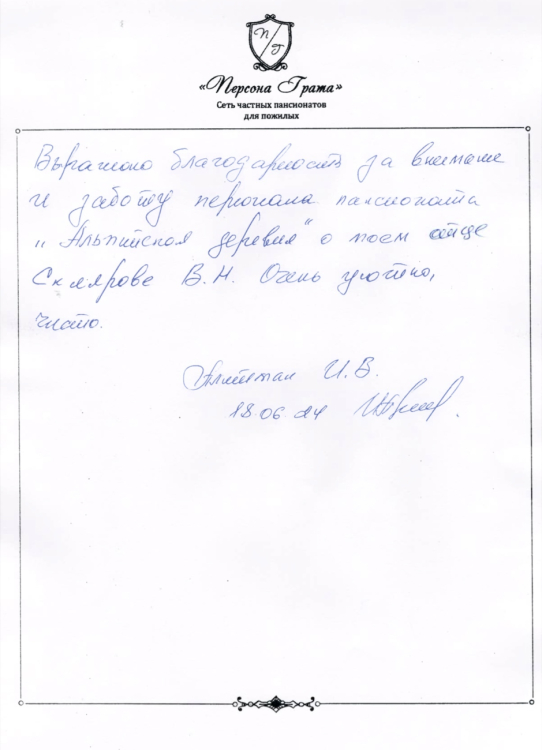 П/Г
«Персона Грата»
Сеть частных пансионатов
для пожилых
Выражаю благодарность за внимание
и заботу персонала пансионата
"Альпийская деревня" о моем отце
Склярове В.Н. Очень уютно,
чисто.
И.В.
18.06.24